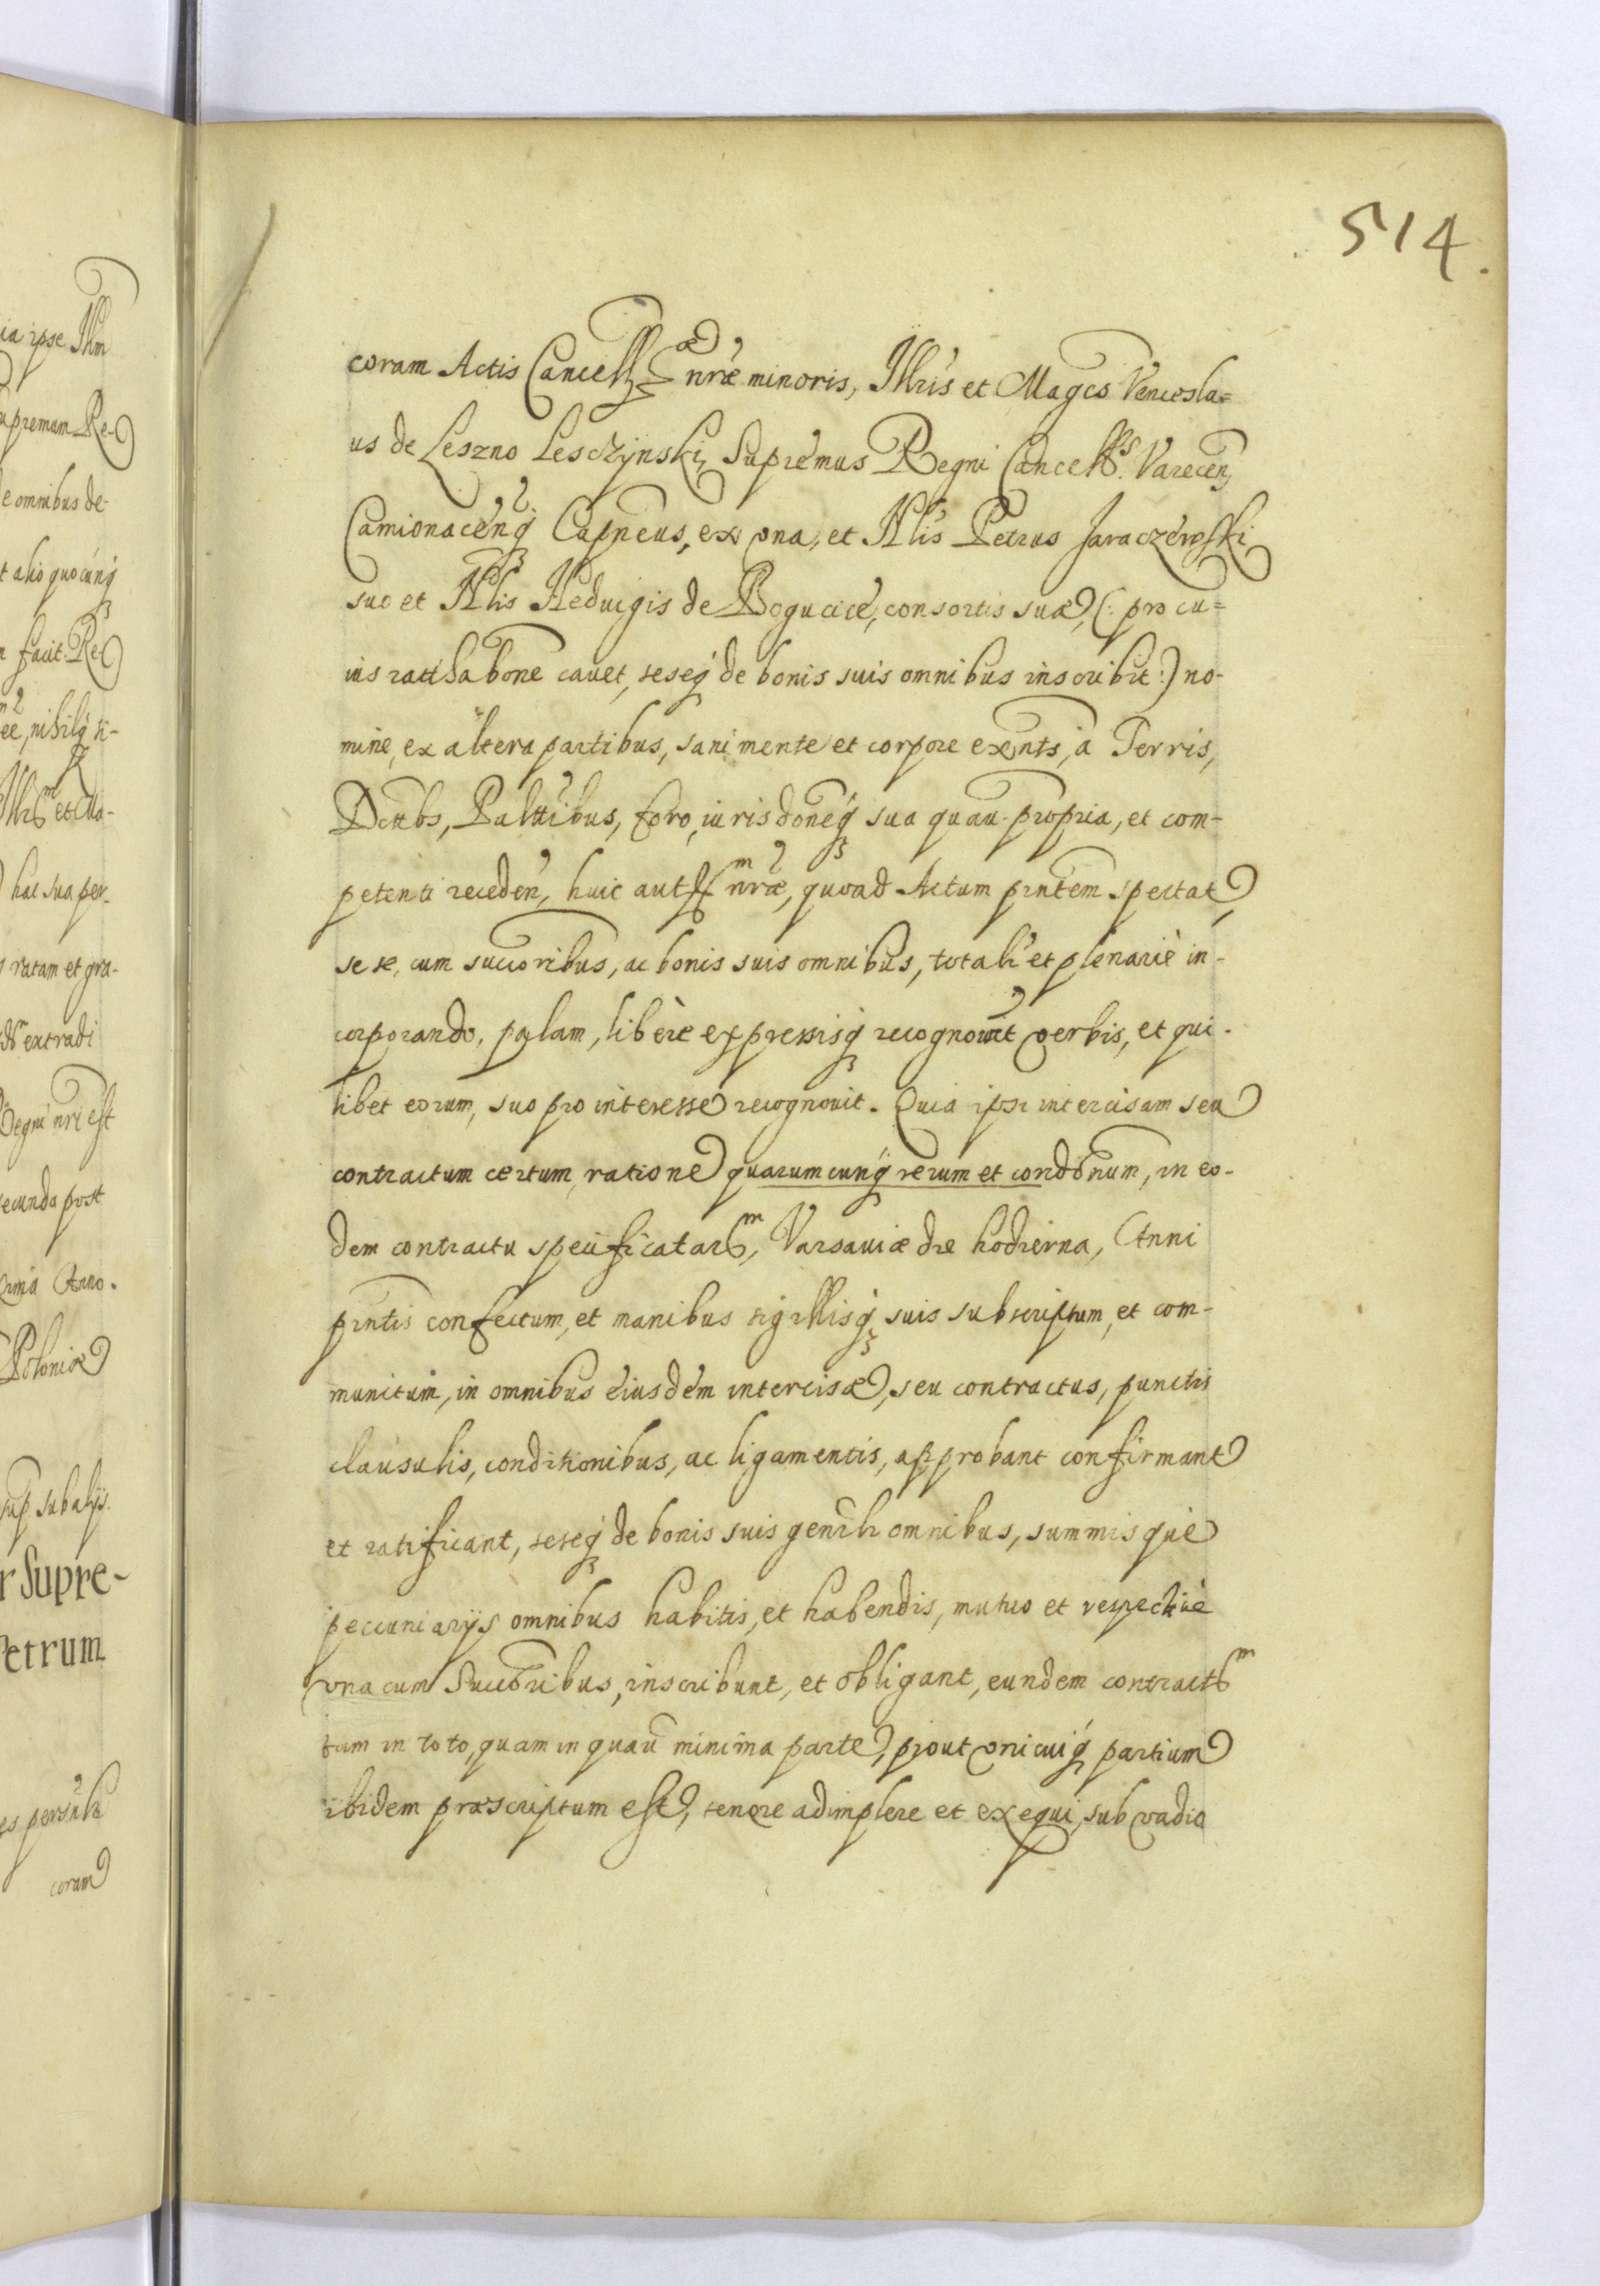 514.
coram Actis Cancell͞æ nr̃æ minoris, Illris et Magcs Vencesla=
us de Leszno Lesczÿnski Supremus Regni Cancellrs. Varecen,
Camionacenq́ꝫ Capneus, ex una, et Nlis Petrus Jaraczéwski
suo et Nlis Heduigis de Bogucicé, consortis suæ, (: pro cu=
ius ratihabone cauet, seseq́ de bonis suis omnibus inscribit :) no-
mine, ex altera partibus, sani mente et corpore exnts, a Terris,
Dcttbs, Palttibus, foro, iurisdoneq́ꝫ sua quau. propria, et com-
petenti receden, huic autem nr̃æ, quoad Actum pntem spectat,
sese, cum succoribus, ac bonis suis omnibus, totalr et plenariè in-
corporando, palam, liberè expressisq́ꝫ recognoverunt verbis, et qui-
libet eorum, suo pro interesse recognouit. Quia ipsi intercisam seu
contractum certum, ratione quarumcunq́ rerum et conddnum, in eo-
dem contractu specificatarum, Varsauiæ die hodierna, Anni
pntis confectum, et manibus sigillisq́ꝫ suis subscriptum, et com-
munitum, in omnibus eiusdem intercisæ, seu contractus, punctis
clausulis, conditionibus, ac ligamentis, approbant confirmant
et ratificant, seseq́ꝫ de bonis suis genrlr omnibus, summisque
pecuniarijs omnibus habitis, et habendis, mutuo et respectivè
una cum Succoribus, inscribunt, et obligant, eundem contractum
tam in toto, quam in quau minima parte, prout unicuiq́ partium
ibidem præscriptum est, tenere adimplere et exequi, sub vadio
ia ipse Illm
upremam Re-
e omnibus de-
t alio quocunq́ꝫ
facit. Re-
ee, nihilq́ si-
et Ma-
hac sua per-
ratam et gra-
extradi
Regni nri est
secunda post
Anno.
Poloniæ
sup sub alijs.
r Supre-
Petrum
coram